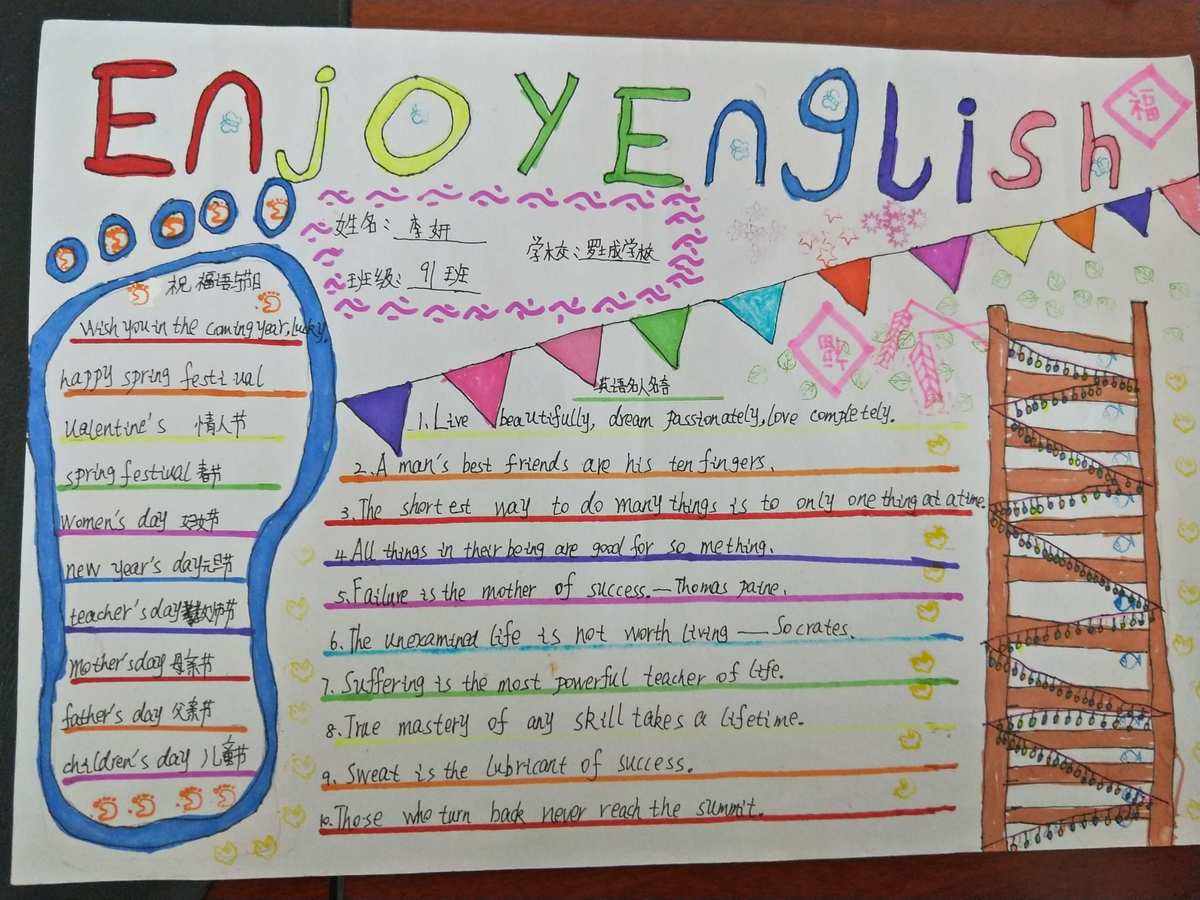 Enjoy English
福
姓名：李妍
学校：罗城学校
班级：91班
祝福语与节日
Wish you in the coming year, lucky.
happy spring festival
Valentine's 情人节
spring festival 春节
women's day 妇女节
new year's day 元旦节
teacher's day 教师节
mother's day 母亲节
father's day 父亲节
children's day 儿童节
福
英语名人名言
1. Live beautifully, dream passionately, love completely.
2. A man's best friends are his ten fingers.
3. The shortest way to do many things is to only one thing at a time.
4. All things in their being are good for so mething.
5. Failure is the mother of success. — Thomas paine.
6. The unexamined life is not worth living — Socrates.
7. Suffering is the most powerful teacher of life.
8. True mastery of any skill takes a lifetime.
9. Sweat is the lubricant of success.
10. Those who turn back never reach the summit.